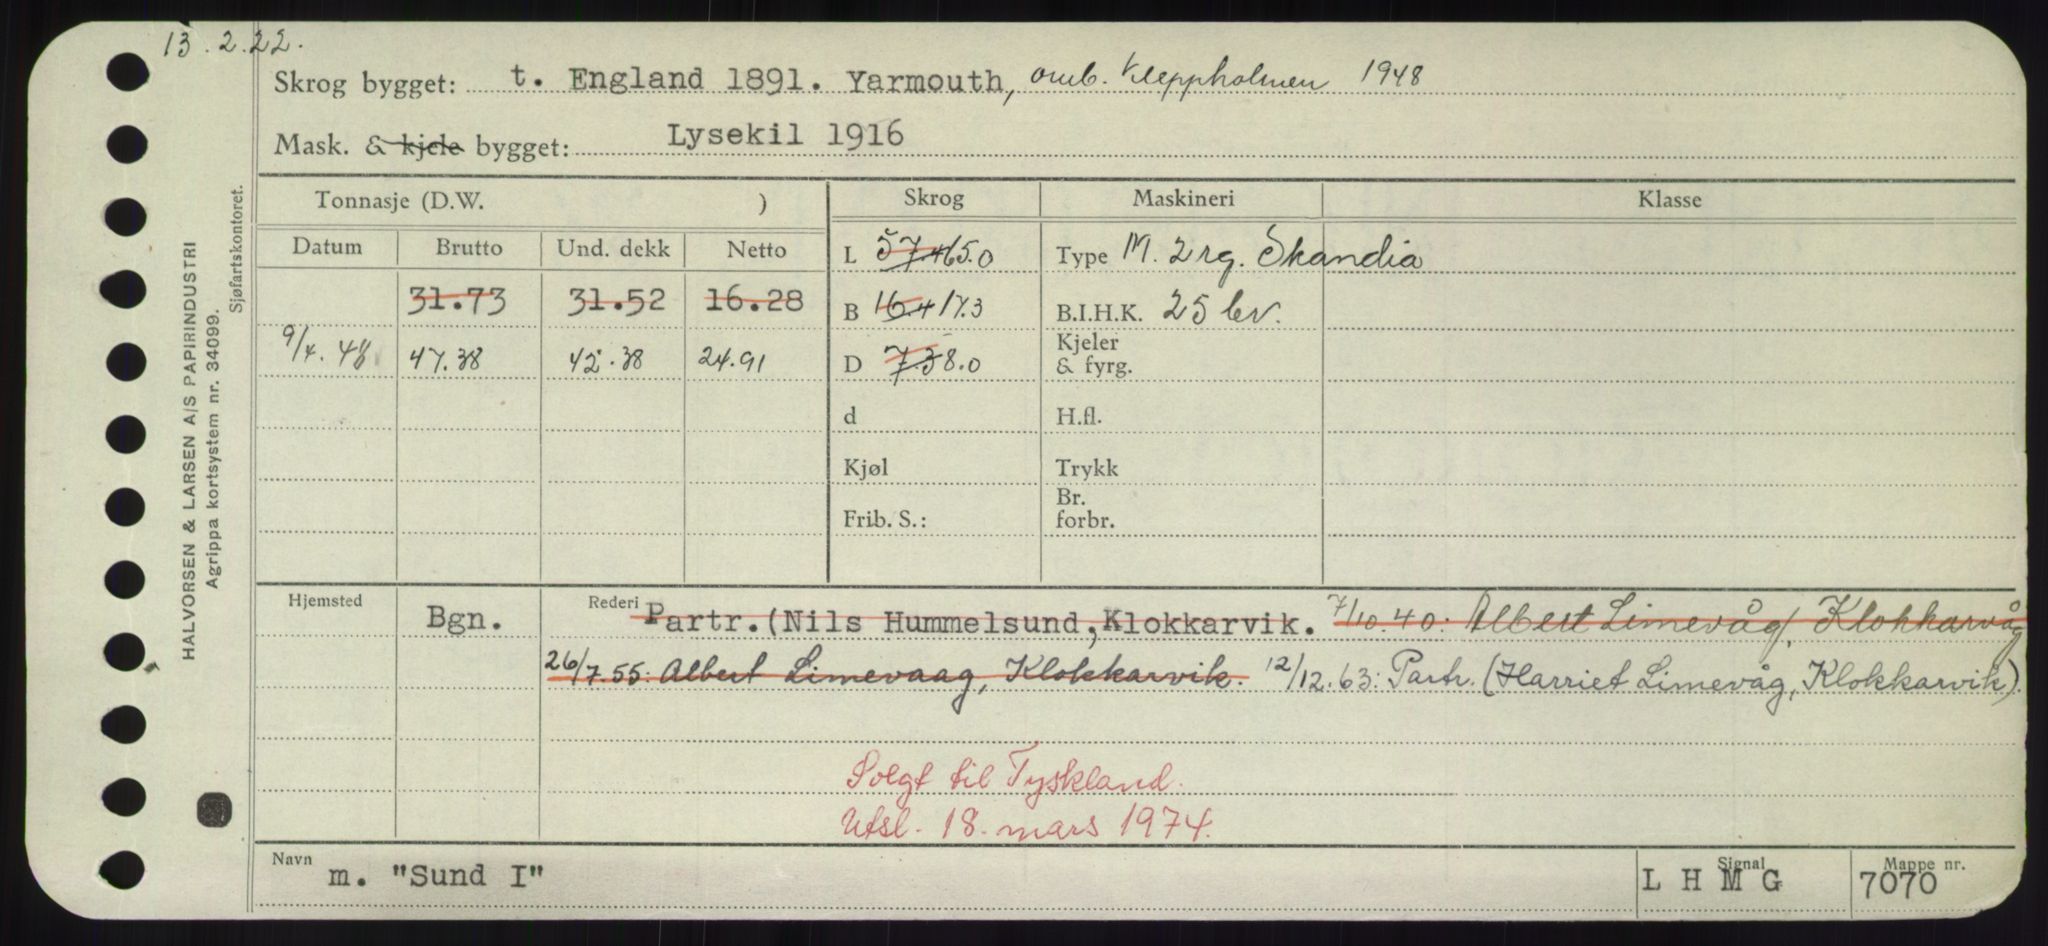 13.2.22.
Skrog bygget: t. England 1891. Yarmouth, omb. Kleppholmen 1948
Mask. & kjele bygget: Lysekil 1916
HALVORSEN & LARSEN A/S PAPIRINDUSTRI
Agrippa kortsystem nr. 34099.
Sjøfartskontoret.
Tonnasje (D.W. ) Skrog Maskineri Klasse
Datum Brutto Und. dekk Netto L 57.4 65.0 Type M. 2 rg. Skandia
31.73 31.52 16.28 B 16.4 17.3 B.I.H.K. 25 ev.
9/4.48 47.38 42.38 24.91 D 7.3 8.0 Kjeler & fyrg.
d H.fl.
Kjøl Trykk
Frib. S.: Br. forbr.
Hjemsted Bgn. Rederi Partr.(Nils Hummelsund, Klokkarvik. 7/10.40: Albert Limevåg, Klokkarvåg
26/7.55: Albert Limevaag, Klokkarvik. 12/12.63: Partr. (Harriet Limevåg, Klokkarvik).
Solgt til Tyskland.
Utsl. 18. mars 1974.
Navn m. "Sund I" Signal L H M G Mappe nr. 7070